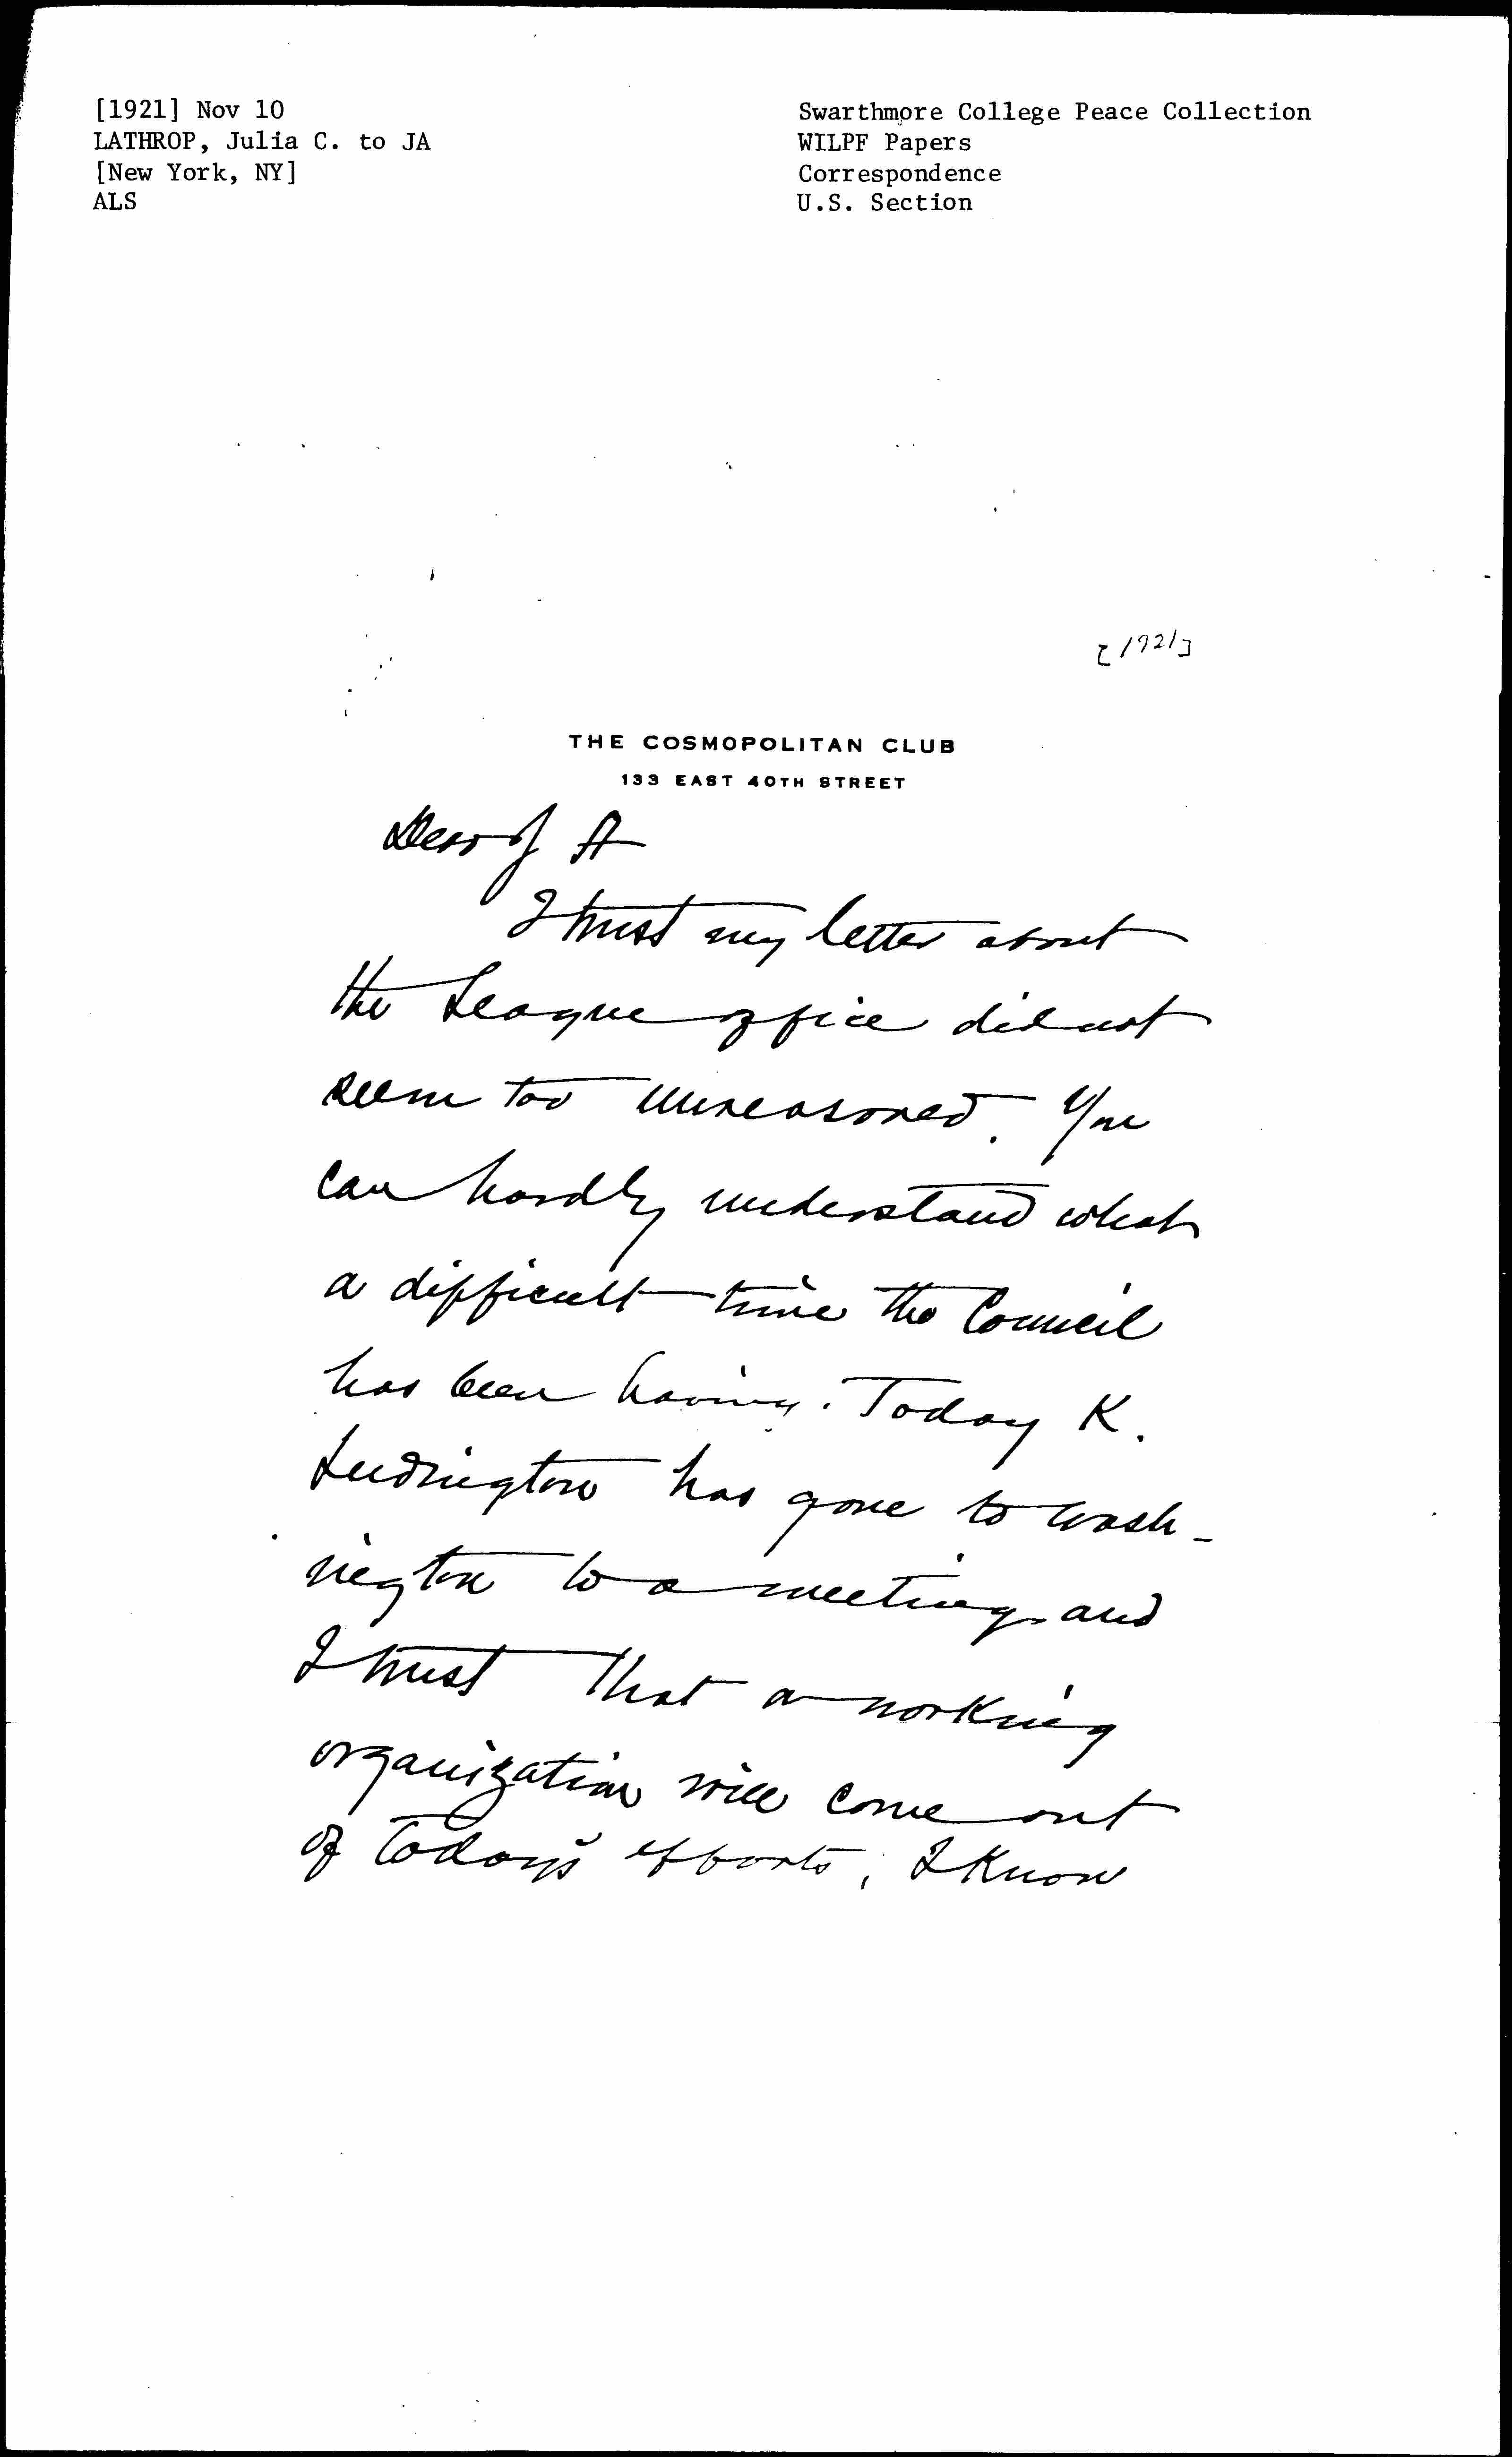 [1921] Nov 10
LATHROP, Julia C. to JA
[New York, NY]
ALS
Swarthmore College Peace Collection
WILPF Papers
Correspondence
U.S. Section
[1921]
THE COSMOPOLITAN CLUB
133 EAST 40TH STREET
Dear J A
I trust my letter about
the League office did not
seem too unreasoned. You
can hardly understand what
a difficult time the Council
has been having. Today K.
Ludington has gone to Wash-
ington to a meeting and
I trust that a working
organization will come out
of today's efforts, I know